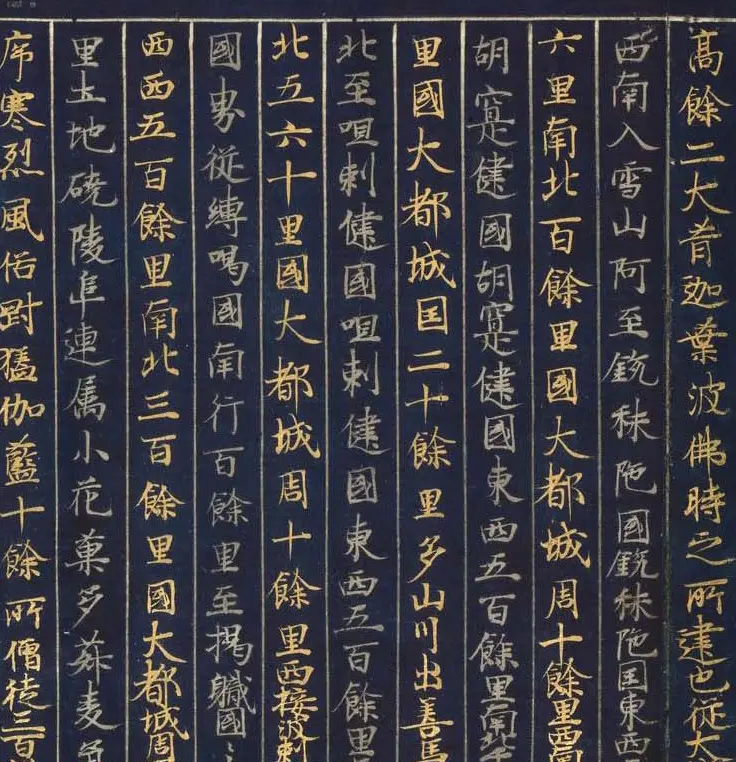 高餘二大昔迦葉波佛時之所建也從大
西南入雪山阿至鋭秣陁國鋭秣陁国東西
六里南北百餘里國大都城周十餘里西南
胡寔健國胡寔健國東西五百餘里南北千
里國大都城囯二十餘里多山川出善馬
北至呾剌健國呾剌健國東西五百餘里
北五六十里國大都城周十餘里西接波剌
國界從縛喝國南行百餘里至揭軄國〻
西西五百餘里南北三百餘里國大都城周
里土地磽陵阜連属小花菓多菽麦
序寒烈風俗剛猛伽藍十餘所僧徒三百